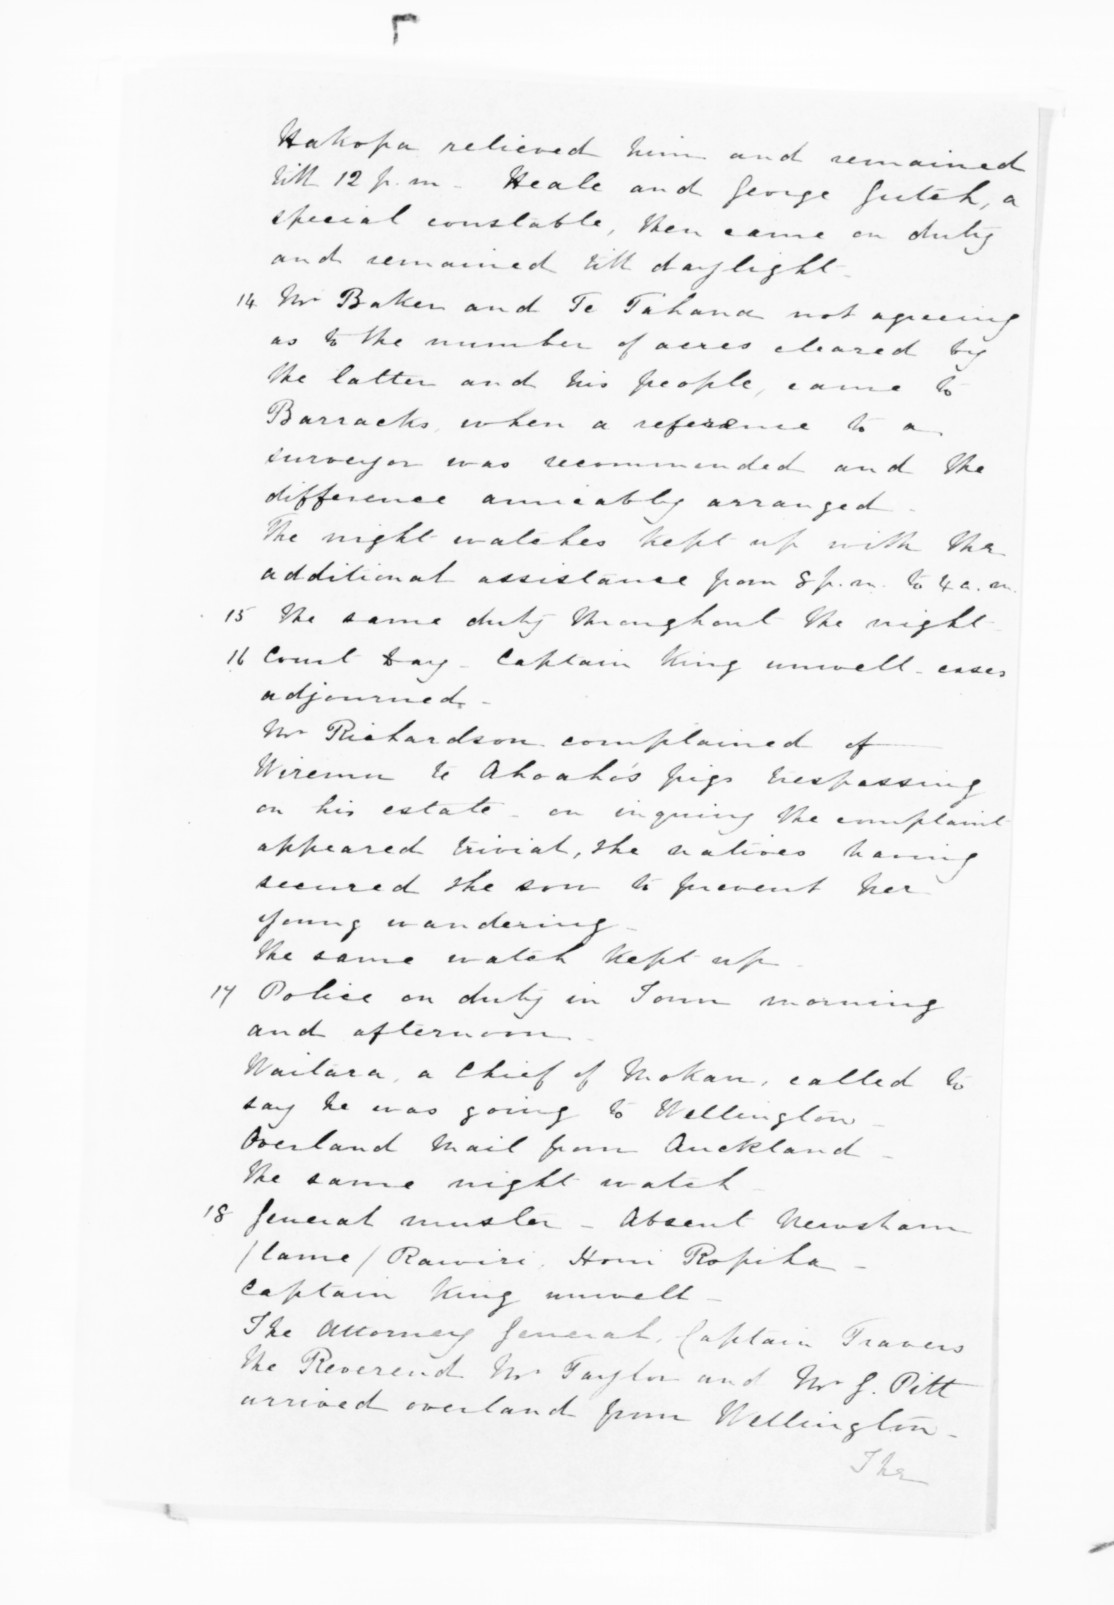 Hakopa relieved him and remained
till 12 p.m - Heale and George Gutch, a
special constable, then came on duty
and remained till daylight -
14 Mr Baker and Te Tahana not agreeing
as to the number of acres cleared by
the latter and his people, came to
Barracks, when a reference to a
surveyor was recommended and the
difference amicably arranged -
The night watches kept up with the
additional assistance from 8 p.m. to 4 a.m.
15 The same duty throughout the night -
16 Court Day - Captain King unwell - cases
adjourned -
Mr Richardson complained of
Wiremu te Ahoaho's pigs trespassing
on his estate - on inquiring the complaint
appeared trivial, the natives having
secured the sow to prevent her
young wandering -
The same watch kept up -
17 Police on duty in Town morning
and afternoon -
Waitara, a Chief of Mokau, called to
say he was going to Wellington -
Overland Mail from Auckland -
The same night watch -
18 General muster - Absent Newsham
/lame/ Rawiri, Honi Ropiha -
Captain King unwell -
The Attorney General, Captain Travers
the Reverend Mr Taylor and Mr G. Pitt
arrived overland from Wellington -
The